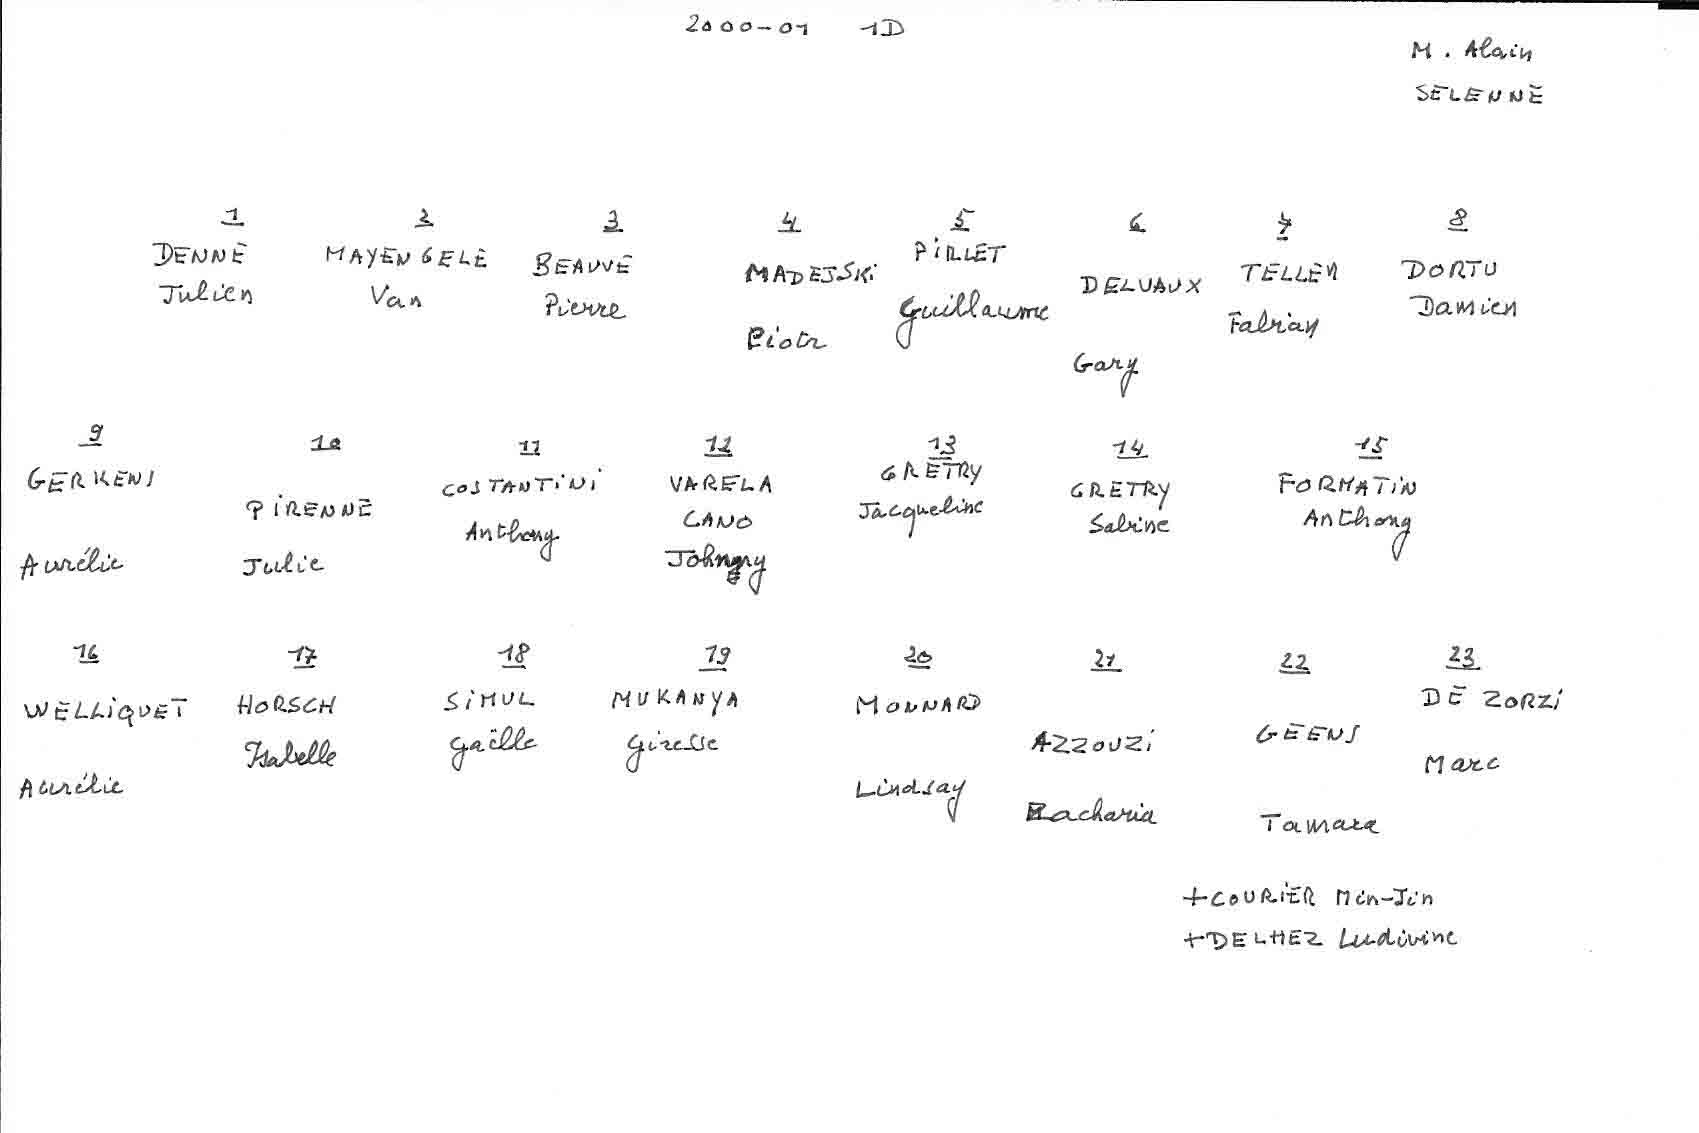 2000-01 1D
M. Alain
SELENNE
1 2 3 4 5 6 7 8
DENNE MAYENGELE BEAUVE MADEJSKI PIRLET DELVAUX TELLEN DORTU
Julien Van Pierre Piotr Guillaume Gary Fabian Damien
9 10 11 12 13 14 15
GERKENS PIRENNE COSTANTINI VARELA GRETRY GRETRY FORMATIN
CANO
Aurélie Julie Anthony Johnny Jacqueline Sabine Anthony
16 17 18 19 20 21 22 23
WELLIQUET HORSCH SIMUL MUKANYA MONNARD AZZOUZI GEENS DE ZORZI
Aurélie Isabelle Gaëlle Giresse Lindsay Zacharia Tamara Marc
+COURIER Min-Jin
+DELHEZ Ludivine